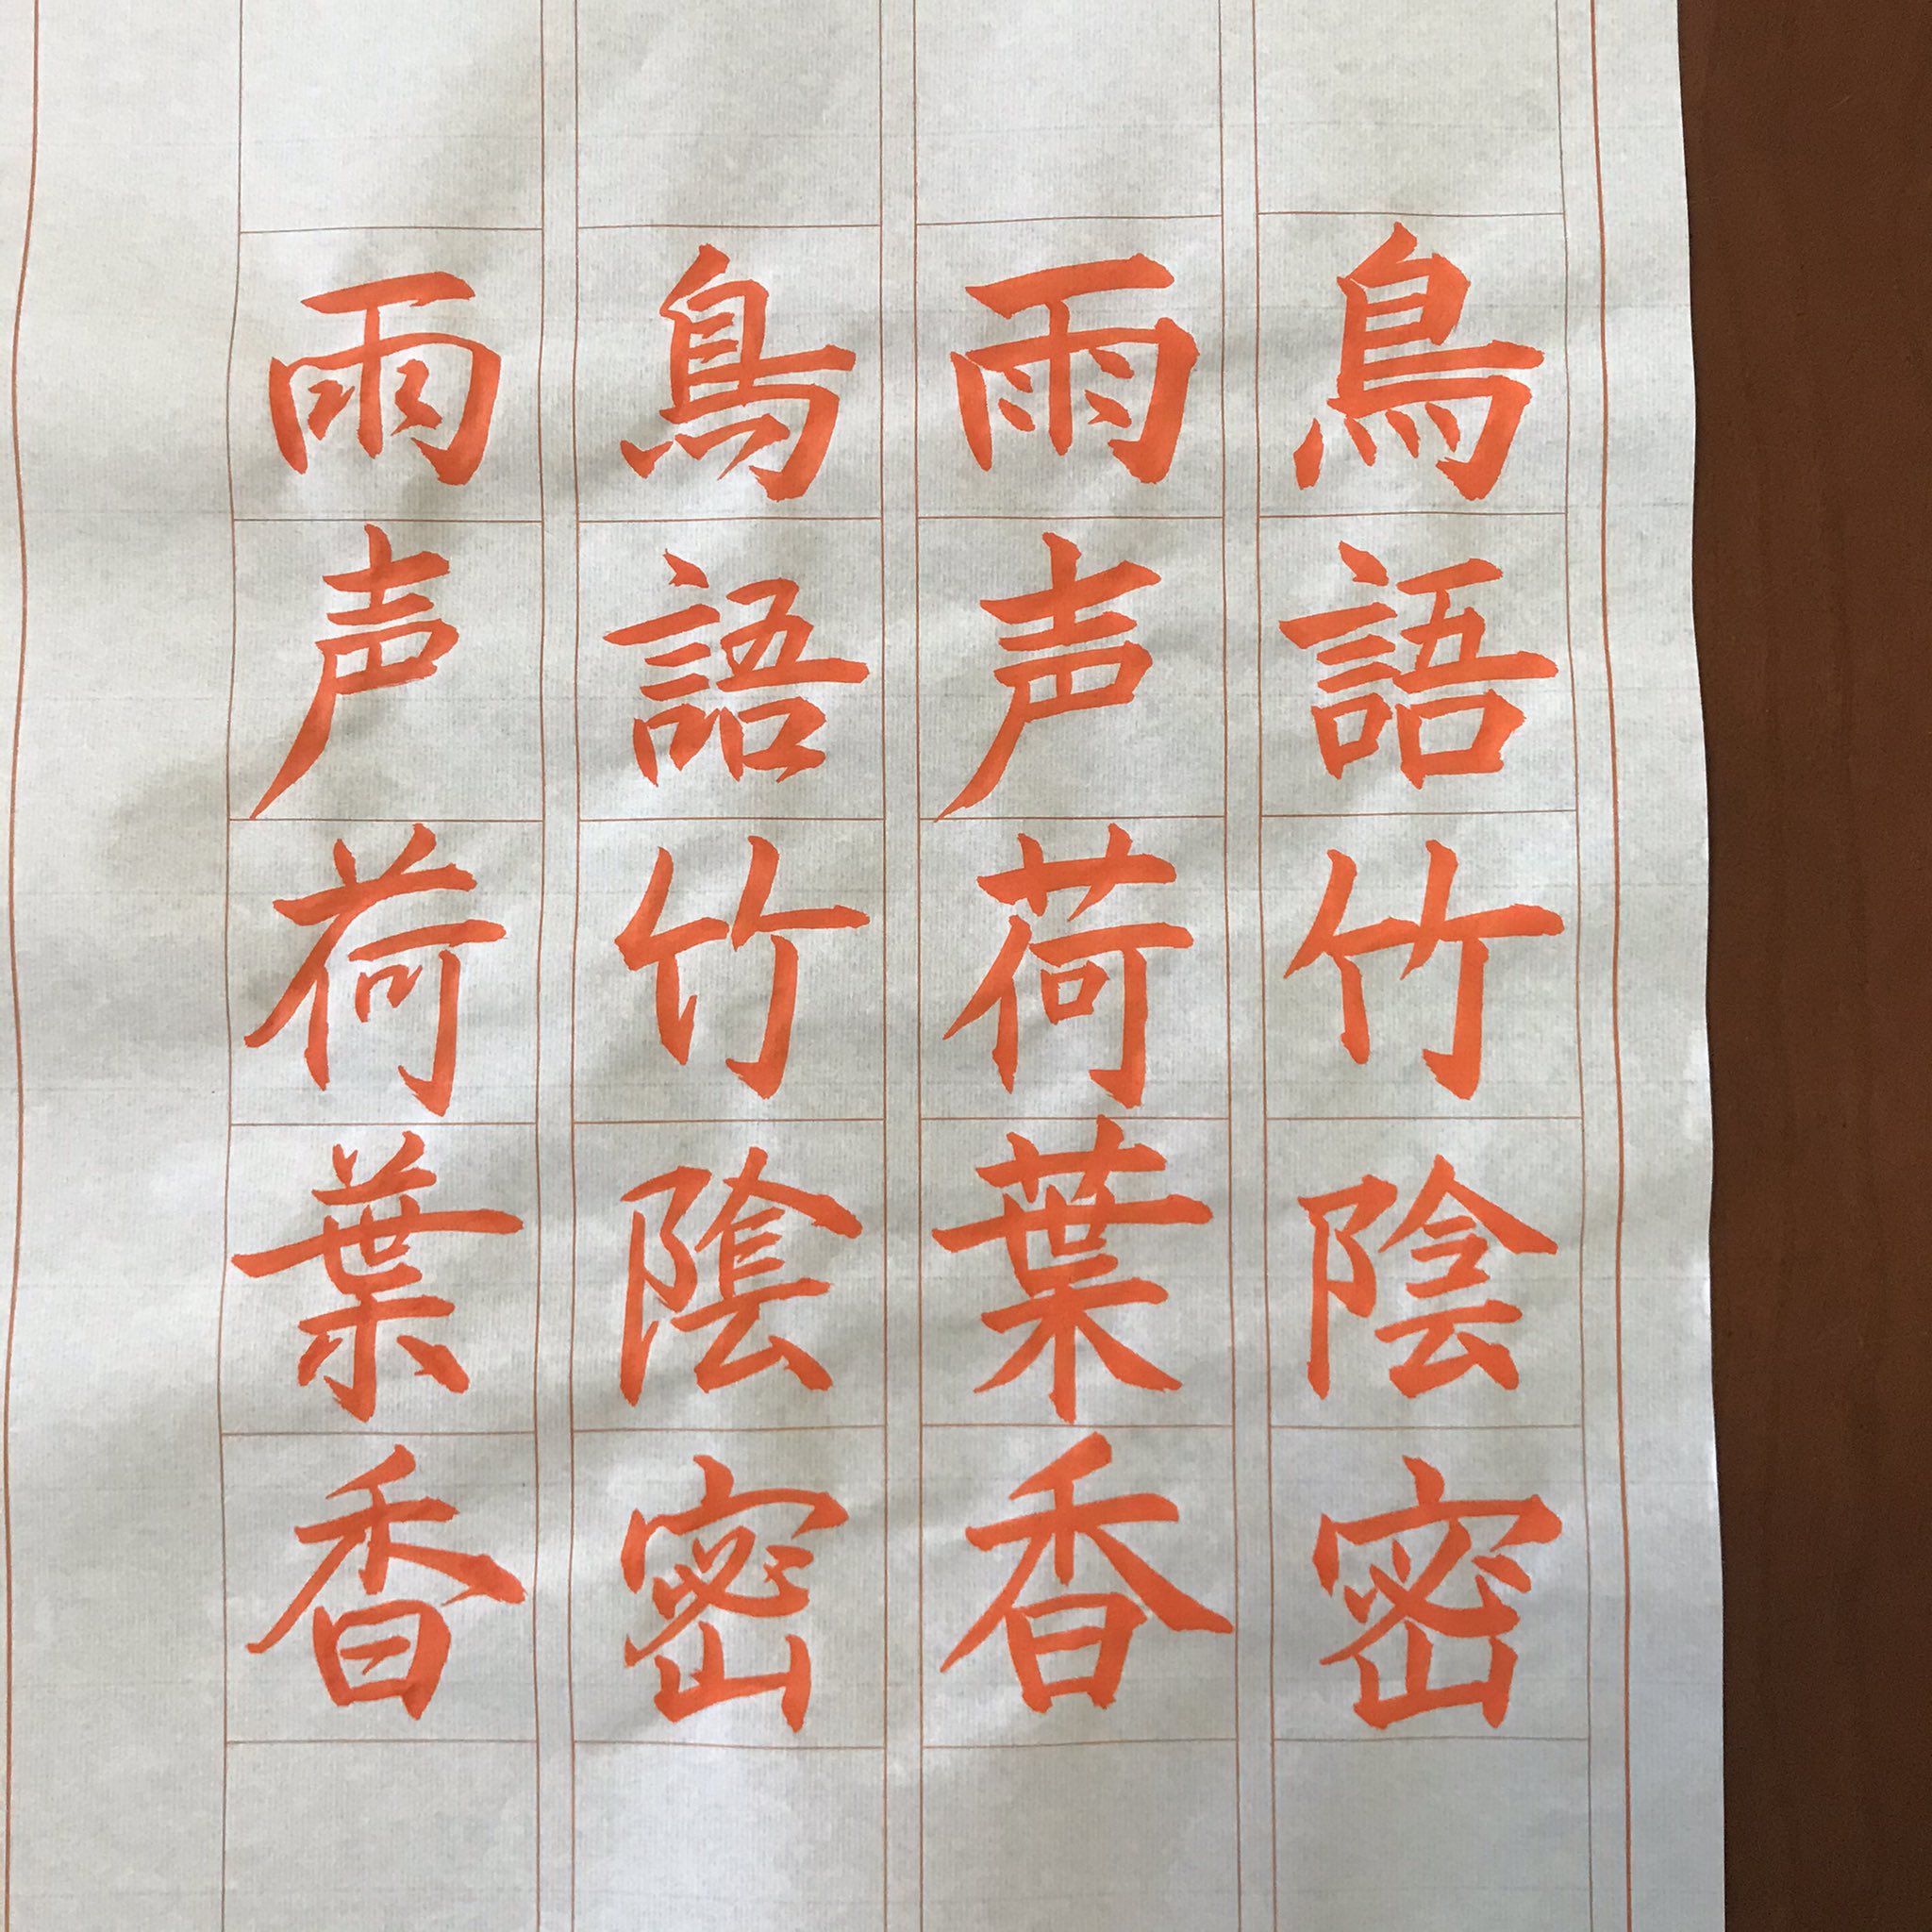 鳥語竹陰密
雨声荷葉香
鳥語竹陰密
雨声荷葉香